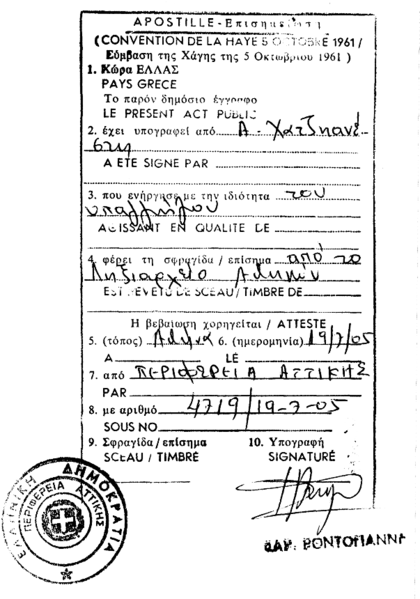 APOSTILLE - Επισημείωση
(CONVENTION DE LA HAYE 5 OCTOBRE 1961 /
Σύμβαση της Χάγης της 5 Οκτωβρίου 1961 )
1. Χώρα ΕΛΛΑΣ
PAYS GRECE
Το παρόν δημόσιο έγγραφο
LE PRESENT ACT PUBLIC
2. έχει υπογραφεί από Α. Χατζηανέ-
στη
A ETE SIGNE PAR
3. που ενήργησε με την ιδιότητα του
υπαλλήλου
AGISSANT EN QUALITE DE
4. φέρει τη σφραγίδα / επίσημα από το
Ληξιαρχείο Αθηνών
EST REVETU DE SCEAU / TIMBRE DE
Η βεβαίωση χορηγείται / ATTESTE
5. (τόπος) Αθήνα 6. (ημερομηνία) 19/7/05
A LÉ
7. από ΠΕΡΙΦΕΡΕΙΑ ΑΤΤΙΚΗΣ
PAR
8. με αριθμό 4719/19-7-05
SOUS NO
9. Σφραγίδα / επίσημα 10. Υπογραφή
SCEAU / TIMBRÉ SIGNATURÉ
ΕΛΛΗΝΙΚΗ ΔΗΜΟΚΡΑΤΙΑ
ΠΕΡΙΦΕΡΕΙΑ ΑΤΤΙΚΗΣ